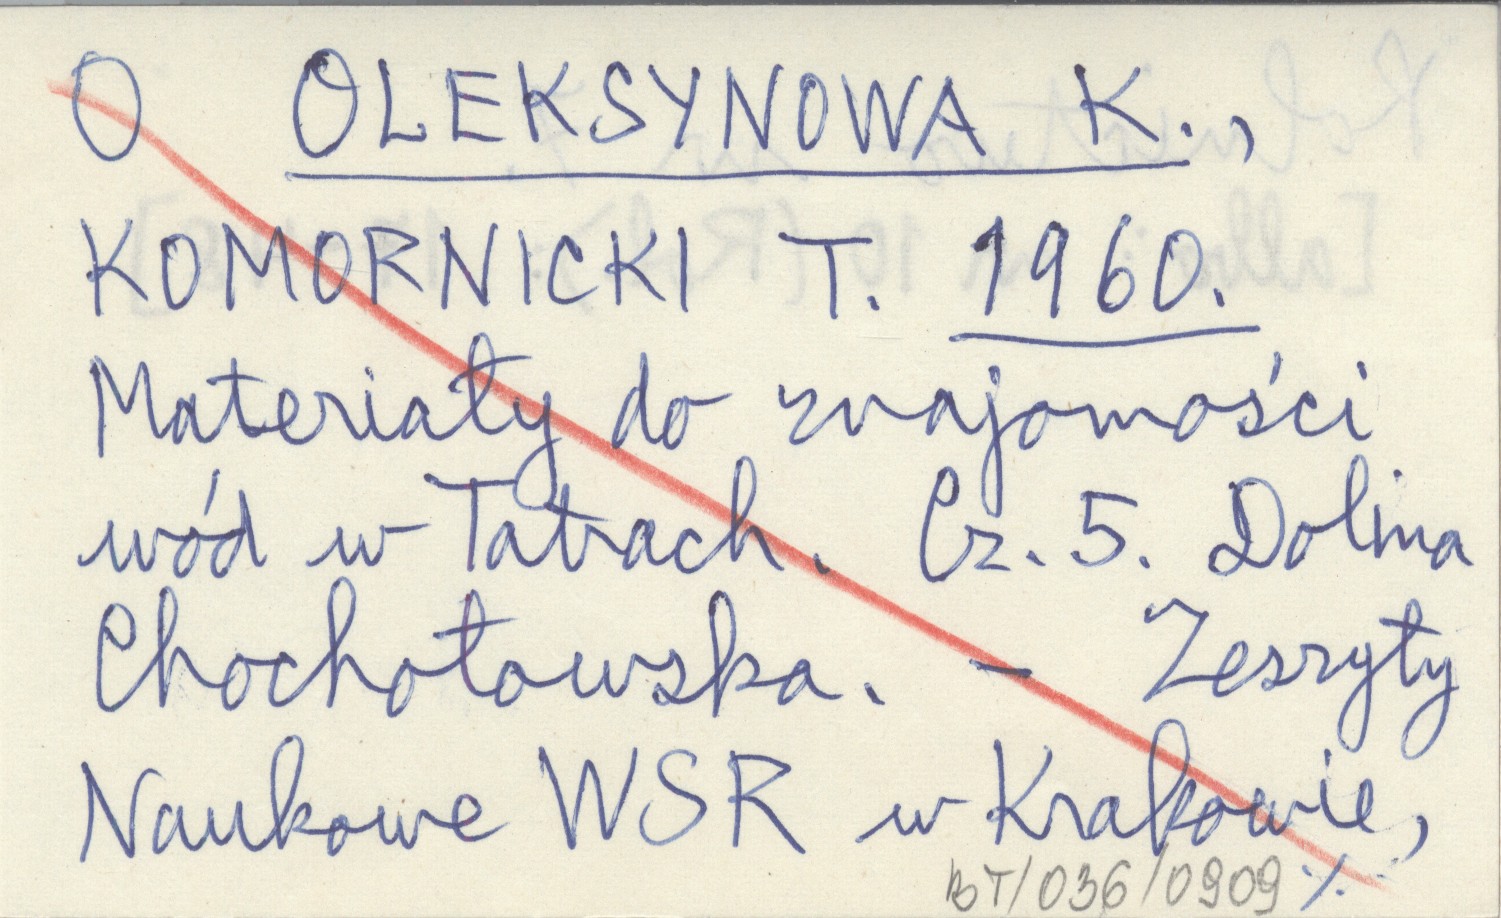 O OLEKSYNOWA K.,
KOMORNICKI T. 1960.
Materiały do znajomości
wód w Tatrach. Cz. 5. Dolina
Chochołowska. – Zeszyty
Naukowe WSR w Krakowie,
BT/036/0909 ·/.